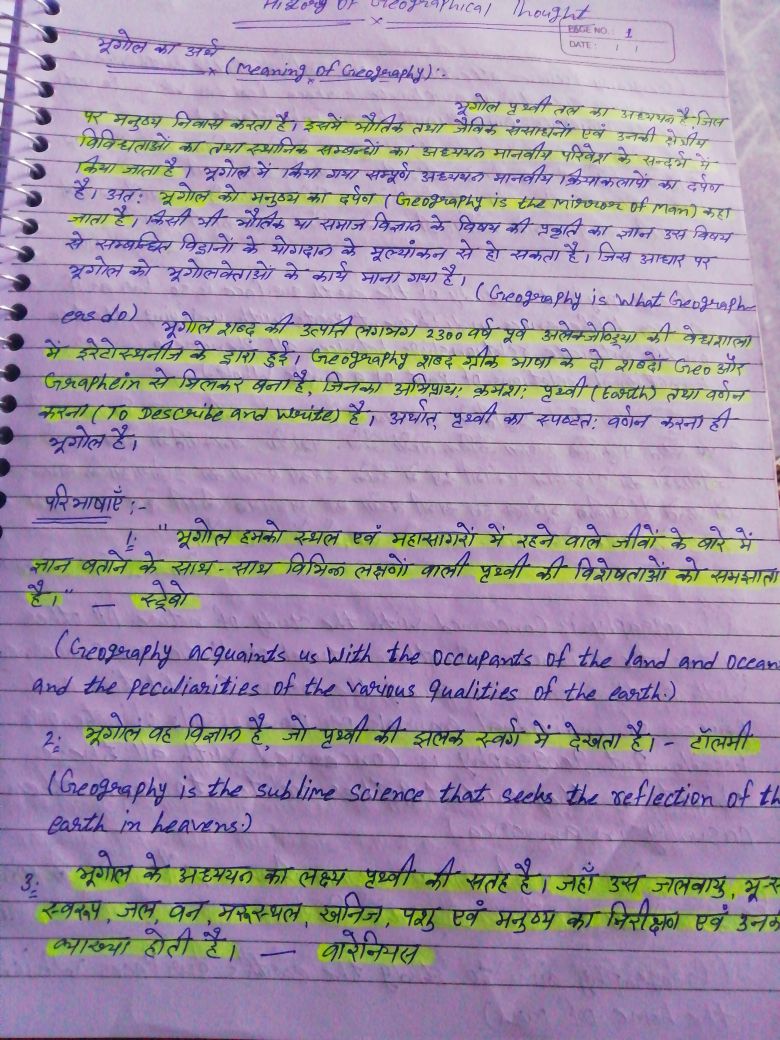 History of Geographical Thought
PAGE NO.: 1
DATE: / /
भूगोल का अर्थ
(Meaning of Geography):-
भूगोल पृथ्वी तल का अध्ययन है जिस
पर मनुष्य निवास करता है। इसमें भौतिक तथा जैविक संसाधनों एवं उनकी क्षेत्रीय
विविधताओं का तथा स्थानिक सम्बन्धों का अध्ययन मानवीय परिवेश के सन्दर्भ में
किया जाता है। भूगोल में किया गया सम्पूर्ण अध्ययन मानवीय क्रियाकलापों का दर्पण
है। अतः भूगोल को मनुष्य का दर्पण (Geography is the Mirror of Man) कहा
जाता है। किसी भी भौतिक या समाज विज्ञान के विषय की प्रकृति का ज्ञान उस विषय
से सम्बन्धित विद्वानों के योगदान के मूल्यांकन से हो सकता है। जिस आधार पर
भूगोल को भूगोलवेत्ताओं के कार्य माना गया है।
(Geography is What Geograph-
ers do)
भूगोल शब्द की उत्पत्ति लगभग 2300 वर्ष पूर्व अलेक्जेण्ड्रिया की वेधशाला
में इरेटोस्थनीज के द्वारा हुई। Geography शब्द ग्रीक भाषा के दो शब्दों Geo और
Graphein से मिलकर बना है, जिनका अभिप्राय: क्रमशः पृथ्वी (Earth) तथा वर्णन
करना (To Describe and Write) है। अर्थात् पृथ्वी का स्पष्टत: वर्णन करना ही
भूगोल है।
परिभाषाएँ :-
1: "भूगोल हमको स्थल एवं महासागरों में रहने वाले जीवों के बारे में
ज्ञान बताने के साथ-साथ विभिन्न लक्षणों वाली पृथ्वी की विशेषताओं को समझाता
है।" — स्ट्रेबो
(Geography acquaints us With the occupants of the land and ocean
and the peculiarities of the various qualities of the earth.)
2: भूगोल वह विज्ञान है, जो पृथ्वी की झलक स्वर्ग में देखता है। - टॉलमी
(Geography is the sublime science that seeks the reflection of th
earth in heavens.)
3: भूगोल के अध्ययन का लक्ष्य पृथ्वी की सतह है। जहाँ उस जलवायु, भू-स्
स्वरूप, जल, वन, मरूस्थल, खनिज, पशु एवं मनुष्य का निरीक्षण एवं उनक
व्याख्या होती है। — वारेनियस